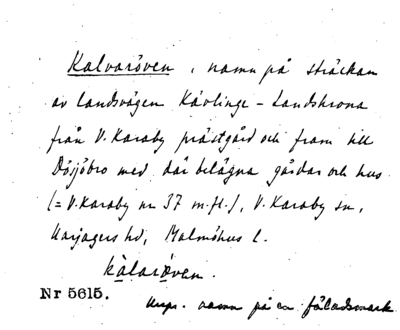 Kalvaröven, namn på sträckan
av landsvägen Kävlinge - Landskrona
från V. Karaby prästgård och fram till
Dösjebro med där belägna gårdar och hus
(= V. Karaby nr 37 m.fl.), V. Karaby sn,
Harjagers hd, Malmöhus l.
kàlaröven.
Nr 5615.
Urspr. namn på en fäladsmark